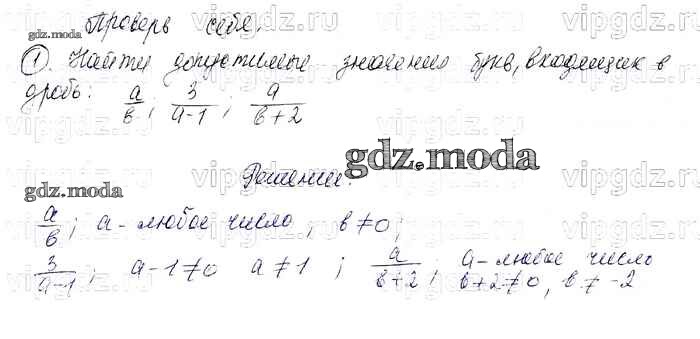 Проверь себя.
1. Найти допустимые значения букв, входящих в
дробь: a/b; 3/(a-1); a/(b+2)
gdz.moda
gdz.moda
Решение:
gdz.moda
a/b; a - любое число, b ≠ 0;
3/(a-1); a-1≠0 a≠1; a/(b+2); a - любое число
b+2≠0, b≠-2
vipgdz.ru